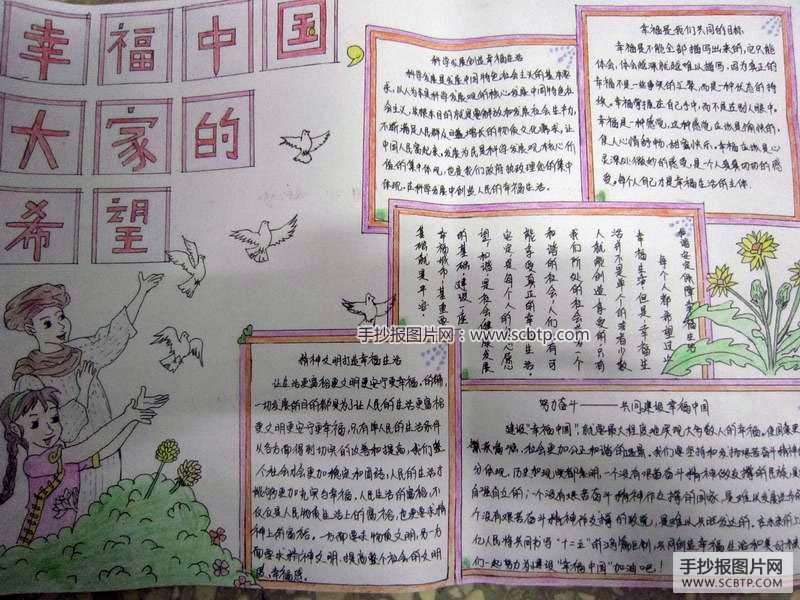 幸福中国，
大家的
希望
科学发展创造幸福生活
科学发展是发展中国特色社会主义的基本要
求，以人为本是科学发展观的核心。发展中国特色社
会主义，发展本目的就是要解放和发展社会生产力，
不断满足人民群众日益增长的物质文化需求，让
中国人民富起来，发展为民是科学发展观核心价
值的集中体现，也是我们政府执政理念的集中
体现，在科学发展中创造人民的幸福生活。
幸福是我们共同的目标
幸福是不能全部描写出来的，它只能
体会，体会越深就越难以描写，因为真正的
幸福不是一些事实的汇聚，而是一种状态的持
续。幸福掌握在自己手中，而不是在别人眼中，
幸福是一种感觉，这种感觉应该是愉快的，
使人心情舒畅，甜蜜快乐。幸福应该是心
灵深处微妙的感觉，是一个人真真切切的感
觉，每个人自己才是幸福生活的主体。
和谐安定保障幸福生活
每个人都希望过上
幸福生活，但是，幸福生
活并不是单个的或者少数
人就能创造享受的，只有
我们所处的社会是一个
和谐的社会，人们才有可
能享受真正的幸福生活。
安定是每个人的心愿
望，和谐是社会健康发展
的基础，建设一座
幸福城市，最重要
基础就是平安。
手抄报图片网：www.scbtp.com
精神文明打造幸福生活
让生活更富裕更文明更安宁更幸福。的确，
一切发展的目的都是为了让人民的生活更富裕
更文明更安宁更幸福，只有市人民的生活条件
从各方面得到切实的改善和提高，我们整
个社会才会更加稳定和团结，人民的生活才
能够更加充实与幸福，人民生活的富裕，不
仅仅是人民物质生活上的富裕，也更要求精
神上的富裕。一方面要求物质文明，另一方
面要求精神文明，提高整个社会的文明
感，幸福感。
努力奋斗——共同建设幸福中国
建设“幸福中国”，就是最大程度地实现大多数人的幸福。使国家更
繁荣富强，社会更加公正和谐的远景，我们要坚持和发扬艰苦奋斗精神
分体现。历史和现实都表明，一个没有艰苦奋斗精神做支撑的民族，是
自强自立的；一个没有艰苦奋斗精神作支撑的国家，是难以发展进步
个没有艰苦奋斗精神作支撑的政党，是难以兴旺发达的。在未来的
亿人民将共同书写“十二五”的鸿篇巨制，共同创造幸福生活和美好
们一起努力为建设“幸福中国”加油吧！
手抄报图片网
WWW.SCBTP.COM